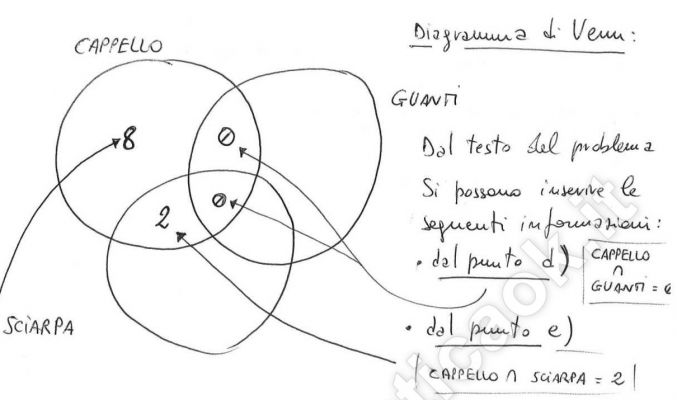 Diagramma di Venn:
CAPPELLO
GUANTI
8
0
0
2
SCIARPA
Dal testo del problema
Si possono inserire le
seguenti informazioni:
• dal punto d)
CAPPELLO
∩
GUANTI =
• dal punto e)
CAPPELLO ∩ SCIARPA = 2